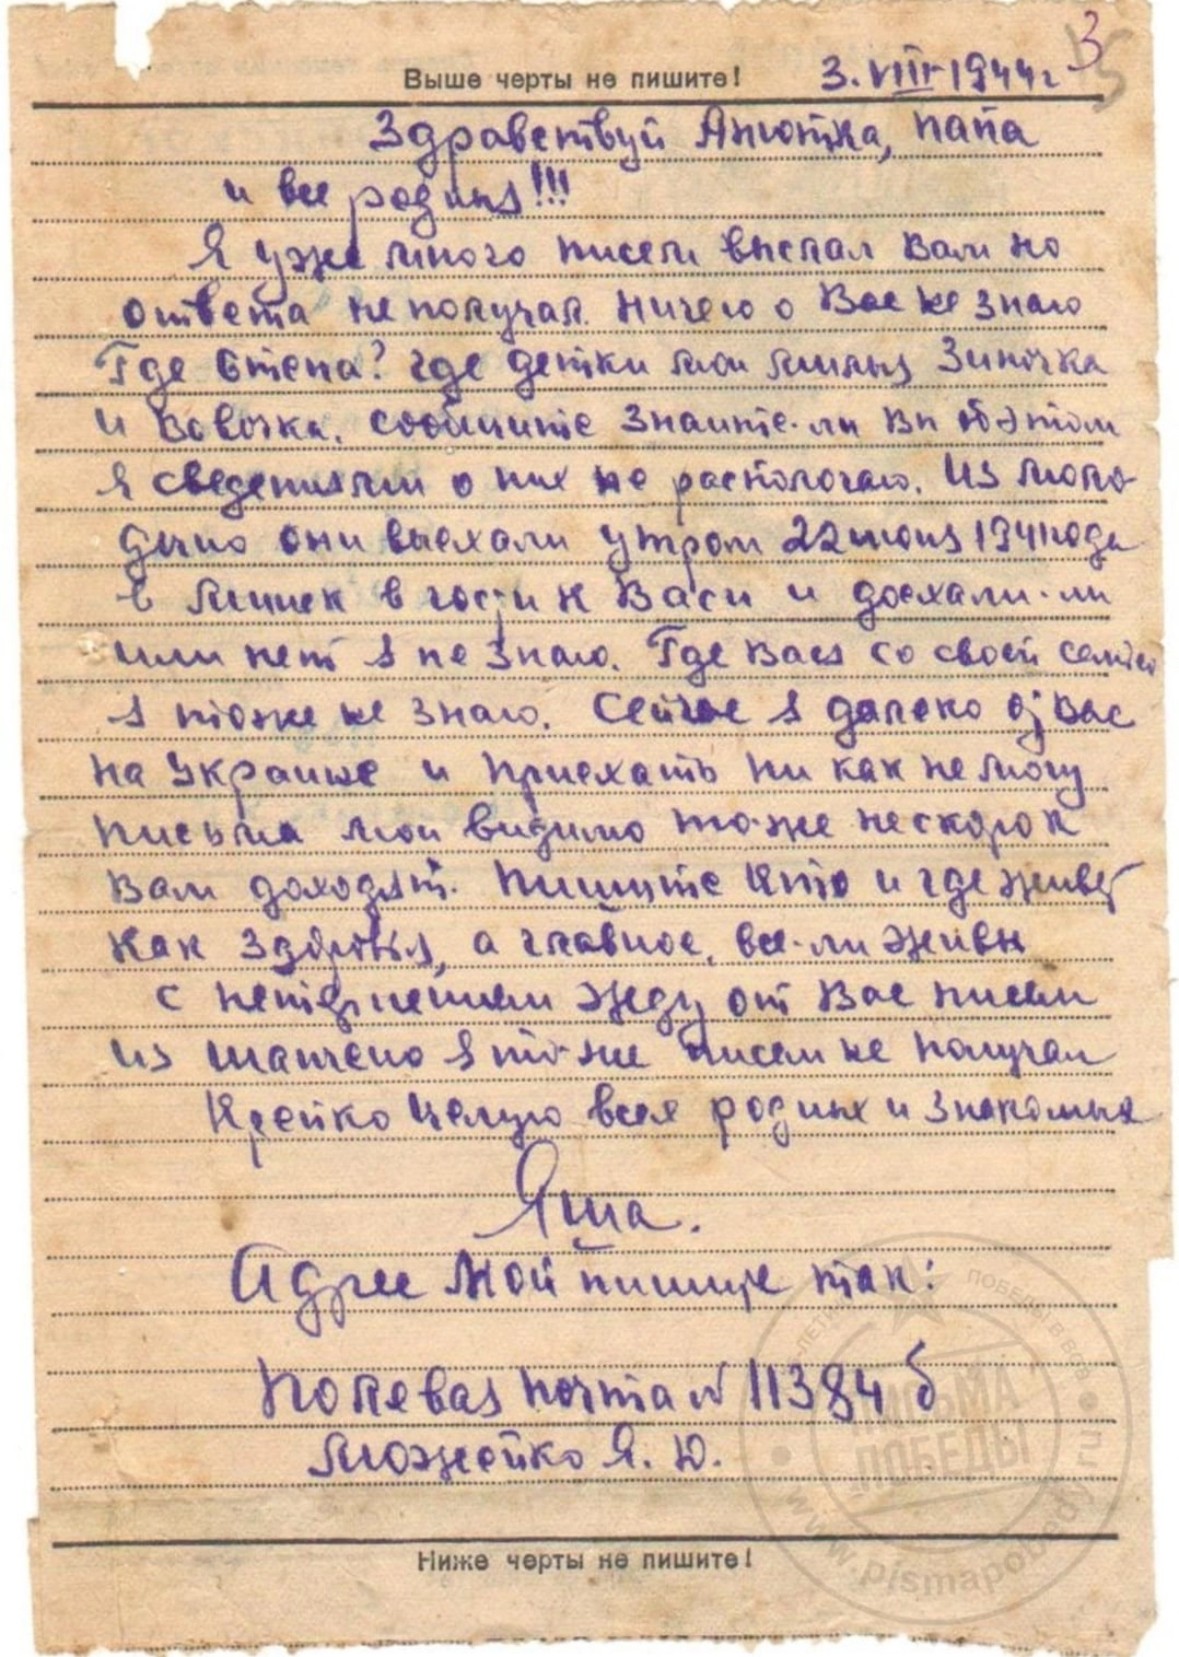 3
15
Выше черты не пишите! 3.VIII-1944г
Здравствуй Анютка, папа
и все родныя!!!
Я уже много писем выслал Вам но
ответа не получал. Ничего о Вас не знаю
Где Степа? где детки мои милыя Зиночка
и Вовочка. сообщите знаите-ли Вы об этом
Я сведениями о них не распологаю. Из Моло-
дечно они выехали утром 22 июня 1941 года
в Минск в гости к Васи и доехали-ли
или нет я не знаю. Где Вася со своей семьей
я тоже не знаю. Сейчас я далеко от Вас
на Украине и приехать ни как не могу
письма мои видимо то-же нескоро к
Вам доходят. Пишите кто и где живет
как здоровья, а главное, все-ли живы
с нетерпением жду от Вас писем
из я то-же писем не получал
Крепко целую всех родных и знакомых
Яша.
Адрес мой пишите так:
Полевая почта № 11384 б
Можейко Я. Ю.
Ниже черты не пишите!
ПОБЕДЫ В ВОВ
ПИСЬМА
ПОБЕДЫ
www.pismapobedy.ru